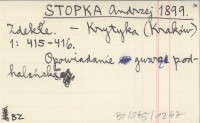 STOPKA Andrzej 1899.
Zdekłe. - Krytyka (Kraków)
1: 415-416.
Opowiadanie gwarą pod-
halańską
BZ
80/1045/1247